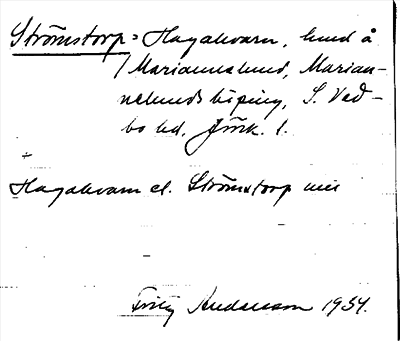 Strömstorp = Hagakvarn, hmd å
/ Mariannelund, Marian-
nelunds köping, S. Ved-
bo hd, Jönk. l.
Hagakvarn el. Strömstorp
Fritz Andersson 1954.